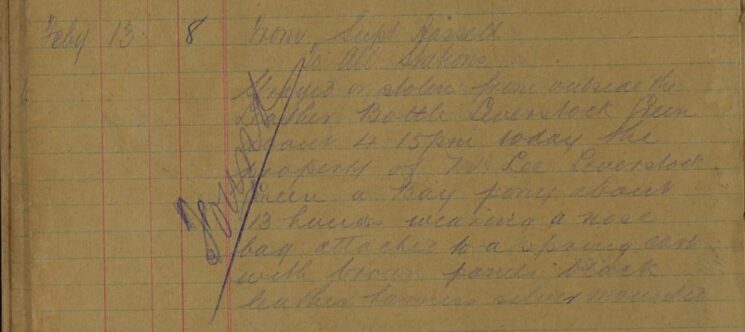 Feby 13 8 From Supt Hassell
to All Stations
Strayed or stolen from outside the
Leather Bottle Leverstock Green
about 4 15pm today the
property of Mr Lee Leverstock
Green a Bay pony about
13 hands wearing a nose
bag attached to a spring cart
with brown panels black
leather harness silver mounted
Found